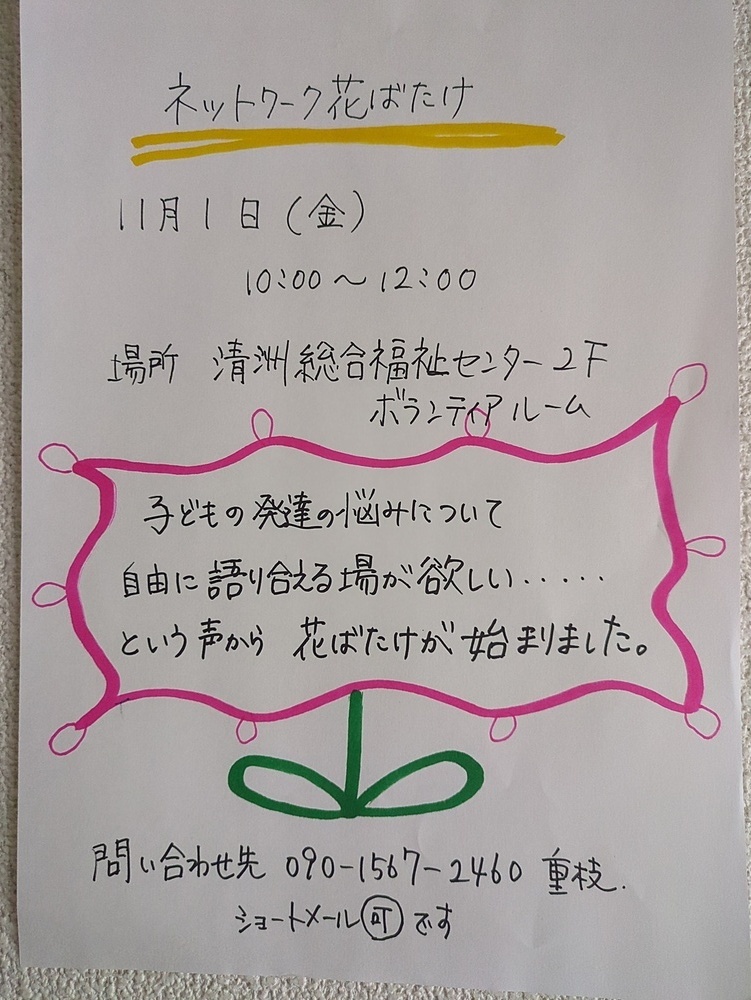 ネットワーク花ばたけ
11月1日(金)
10:00～12:00
場所 清洲総合福祉センター2F
ボランティアルーム
子どもの発達の悩みについて
自由に語り合える場が欲しい・・・・・
という声から 花ばたけが始まりました。
問い合わせ先 090-1567-2460 重枝.
ショートメール可です